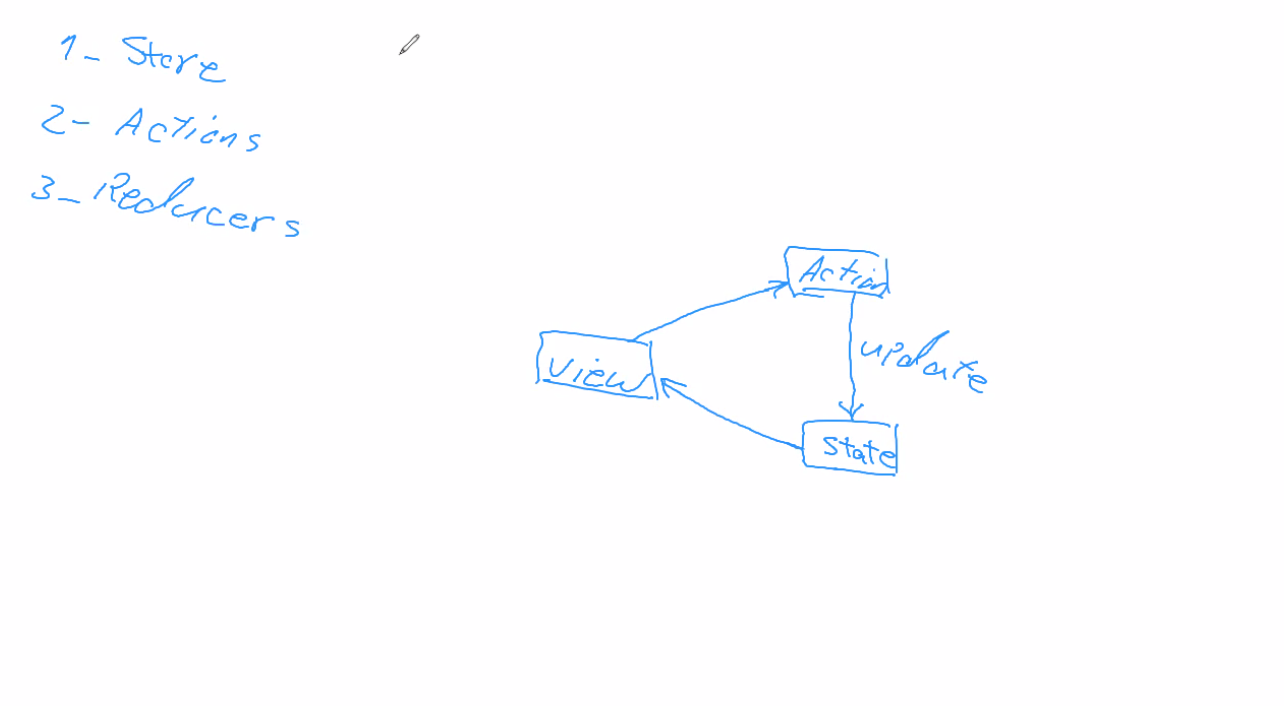 1- Store
2- Actions
3- Reducers
Action
update
view
state